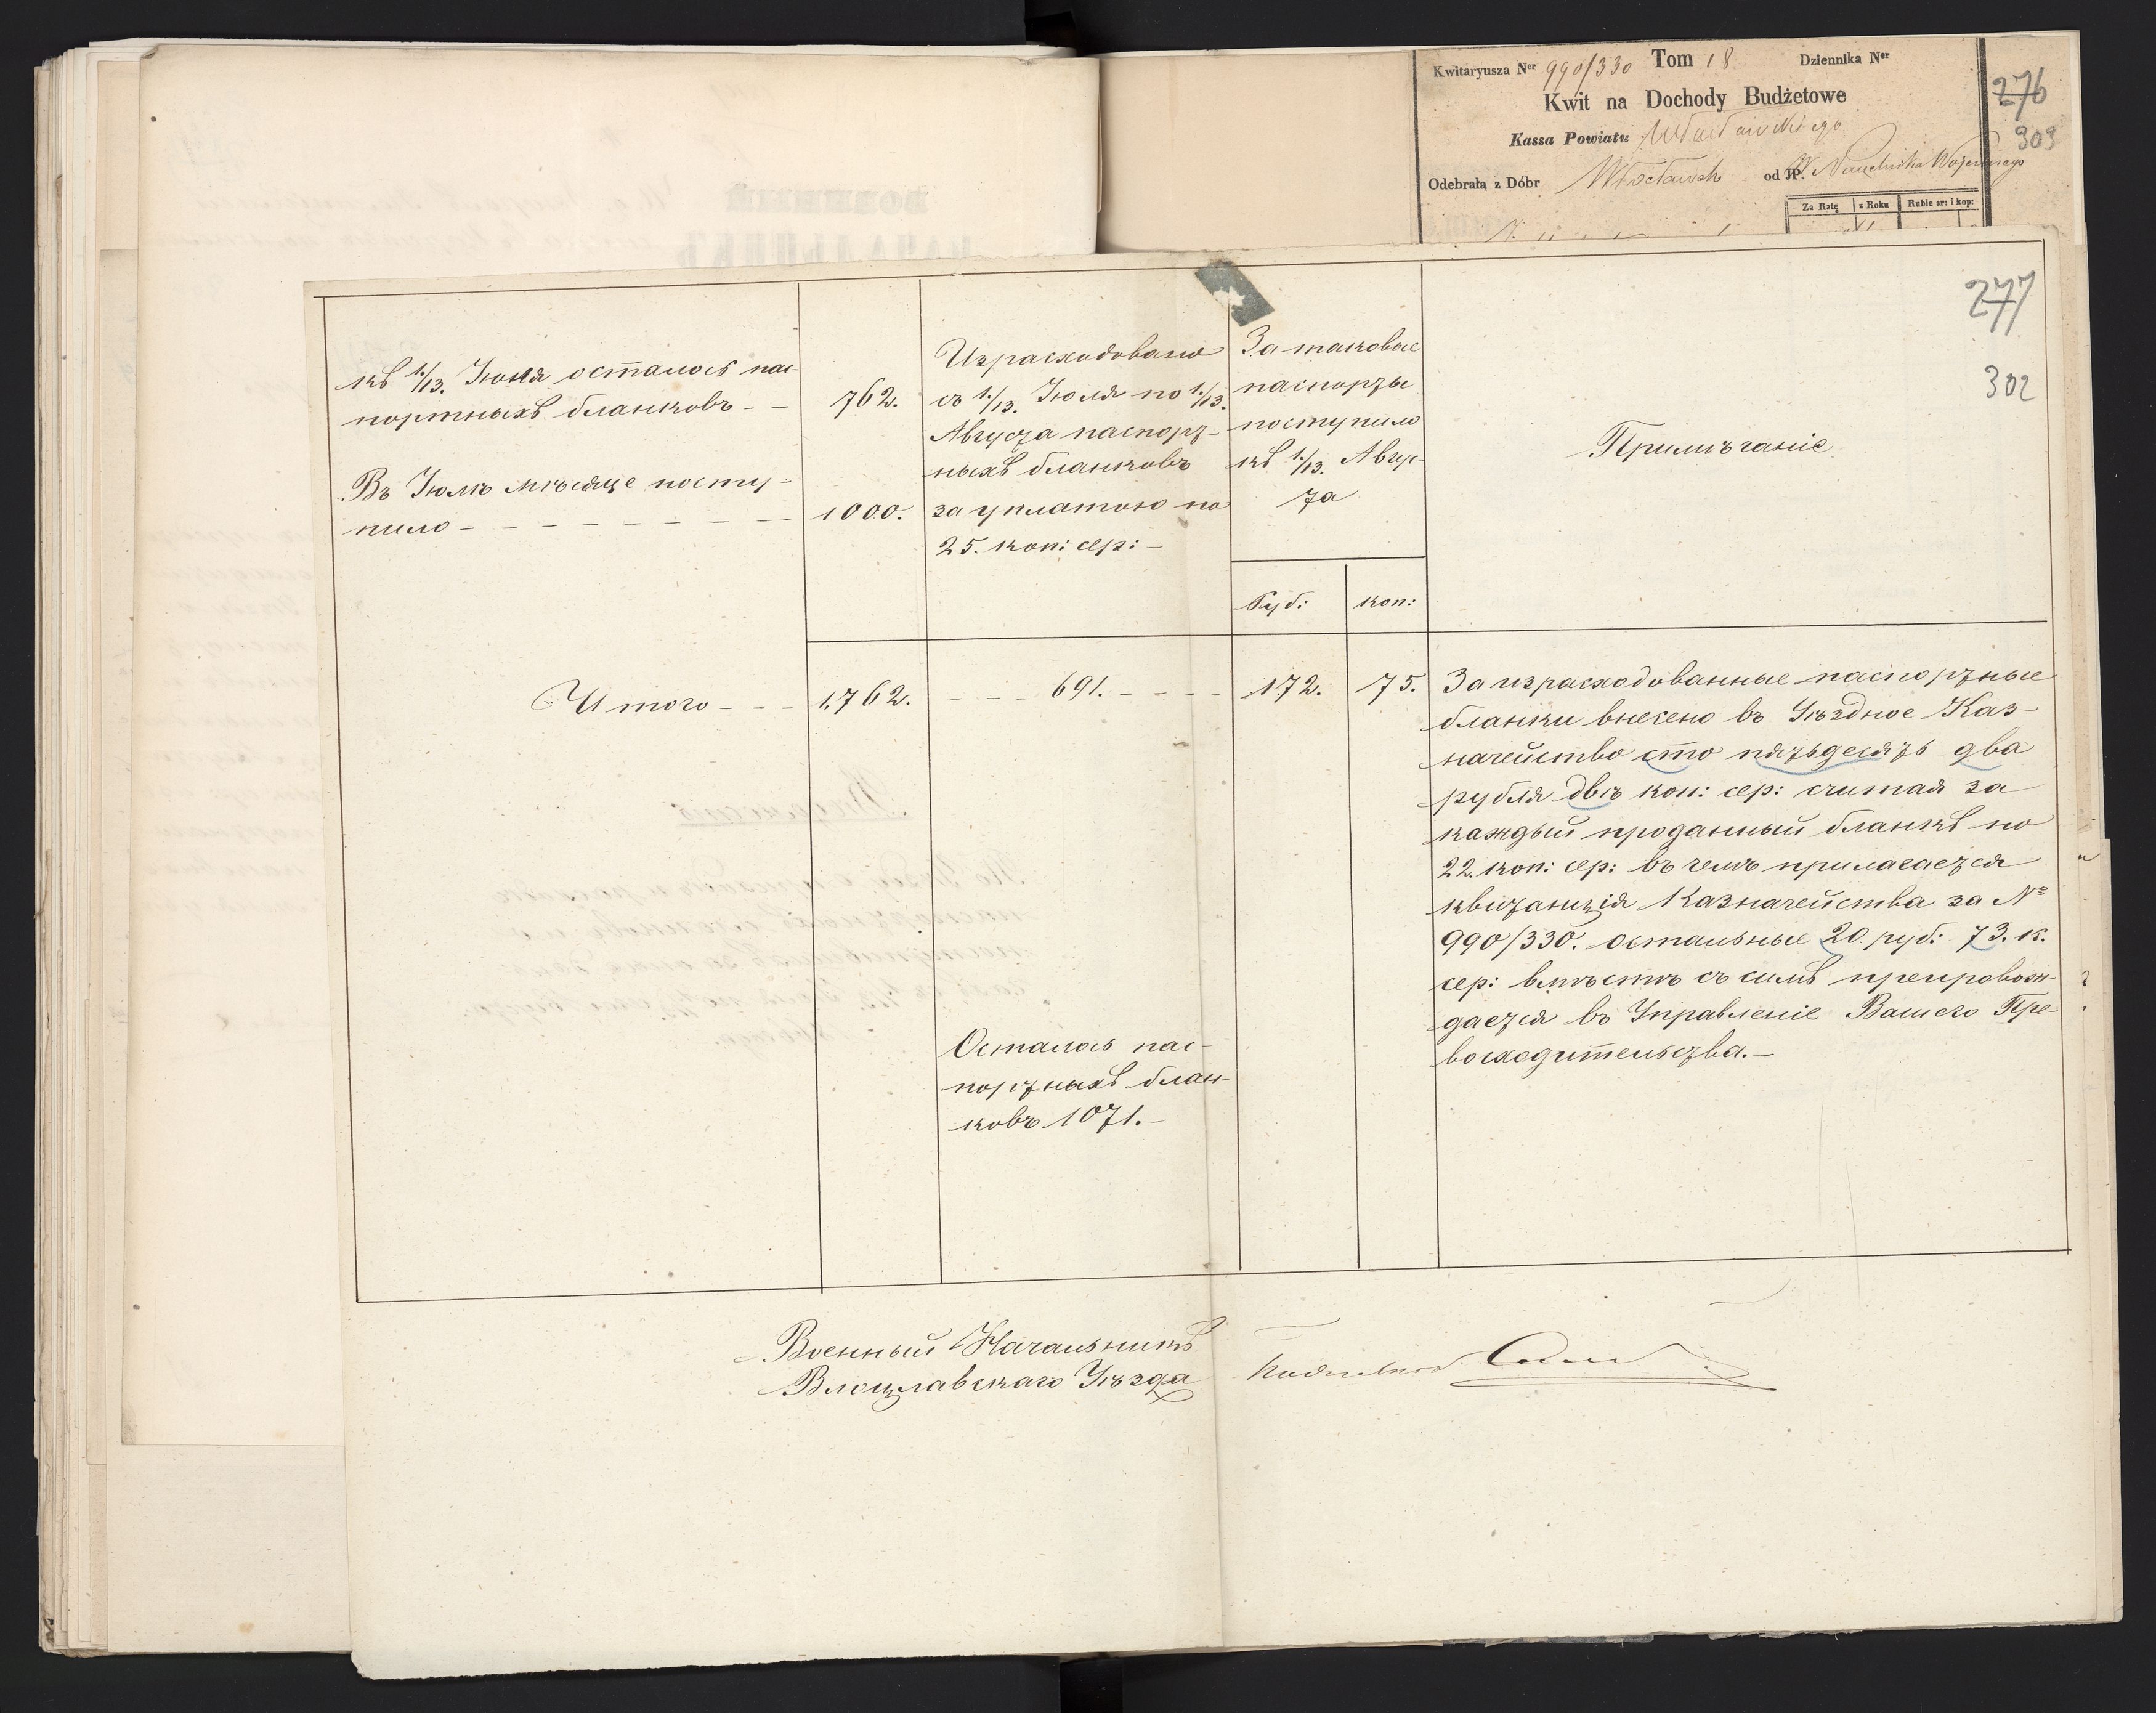 Kwitaryusza Ner 990/330 Tom 18 Dziennika Ner
Kwit na Dochody Budżetowe
Kassa Powiatu Włocławskiego
Odebrała z Dóbr Włocławek od JP. Naczelnika Wojennego
Za Ratę z Roku Ruble sr: i kop:
276
303
277
302
къ 1/13. Іюля осталось пас-
портныхъ бланковъ - -
762.
Въ Іюлѣ мѣсяце посту-
пило - - - - - - - - -
1000.
Израсходовано
съ 1/13. Іюля по 1/13.
Августа паспорт-
ныхъ бланковъ
за уплатою по
25. коп: сер: -
За таковые
паспорты
поступило
къ 1/13. Авгус-
та
Руб: коп:
Примѣчаніе
Итого - - - 1,762. - - - 691. - - - - 172. 75.
За израсходованные паспортные
бланки внесено въ Уѣздное Каз-
начейство сто пятьдесятъ два
рубля двѣ коп: сер: считая за
каждый проданный бланкъ по
22. коп: сер: въ чемъ прилагается
квитанція Казначейства за №
990/330. остальные 20. руб: 73. к.
сер: вмѣстѣ съ симъ препровож-
дается въ Управленіе Вашего Пре-
восходительства. -
Осталось пас-
портныхъ блан-
ковъ 1071. -
Военный Начальникъ
Влоцлавскаго Уѣзда